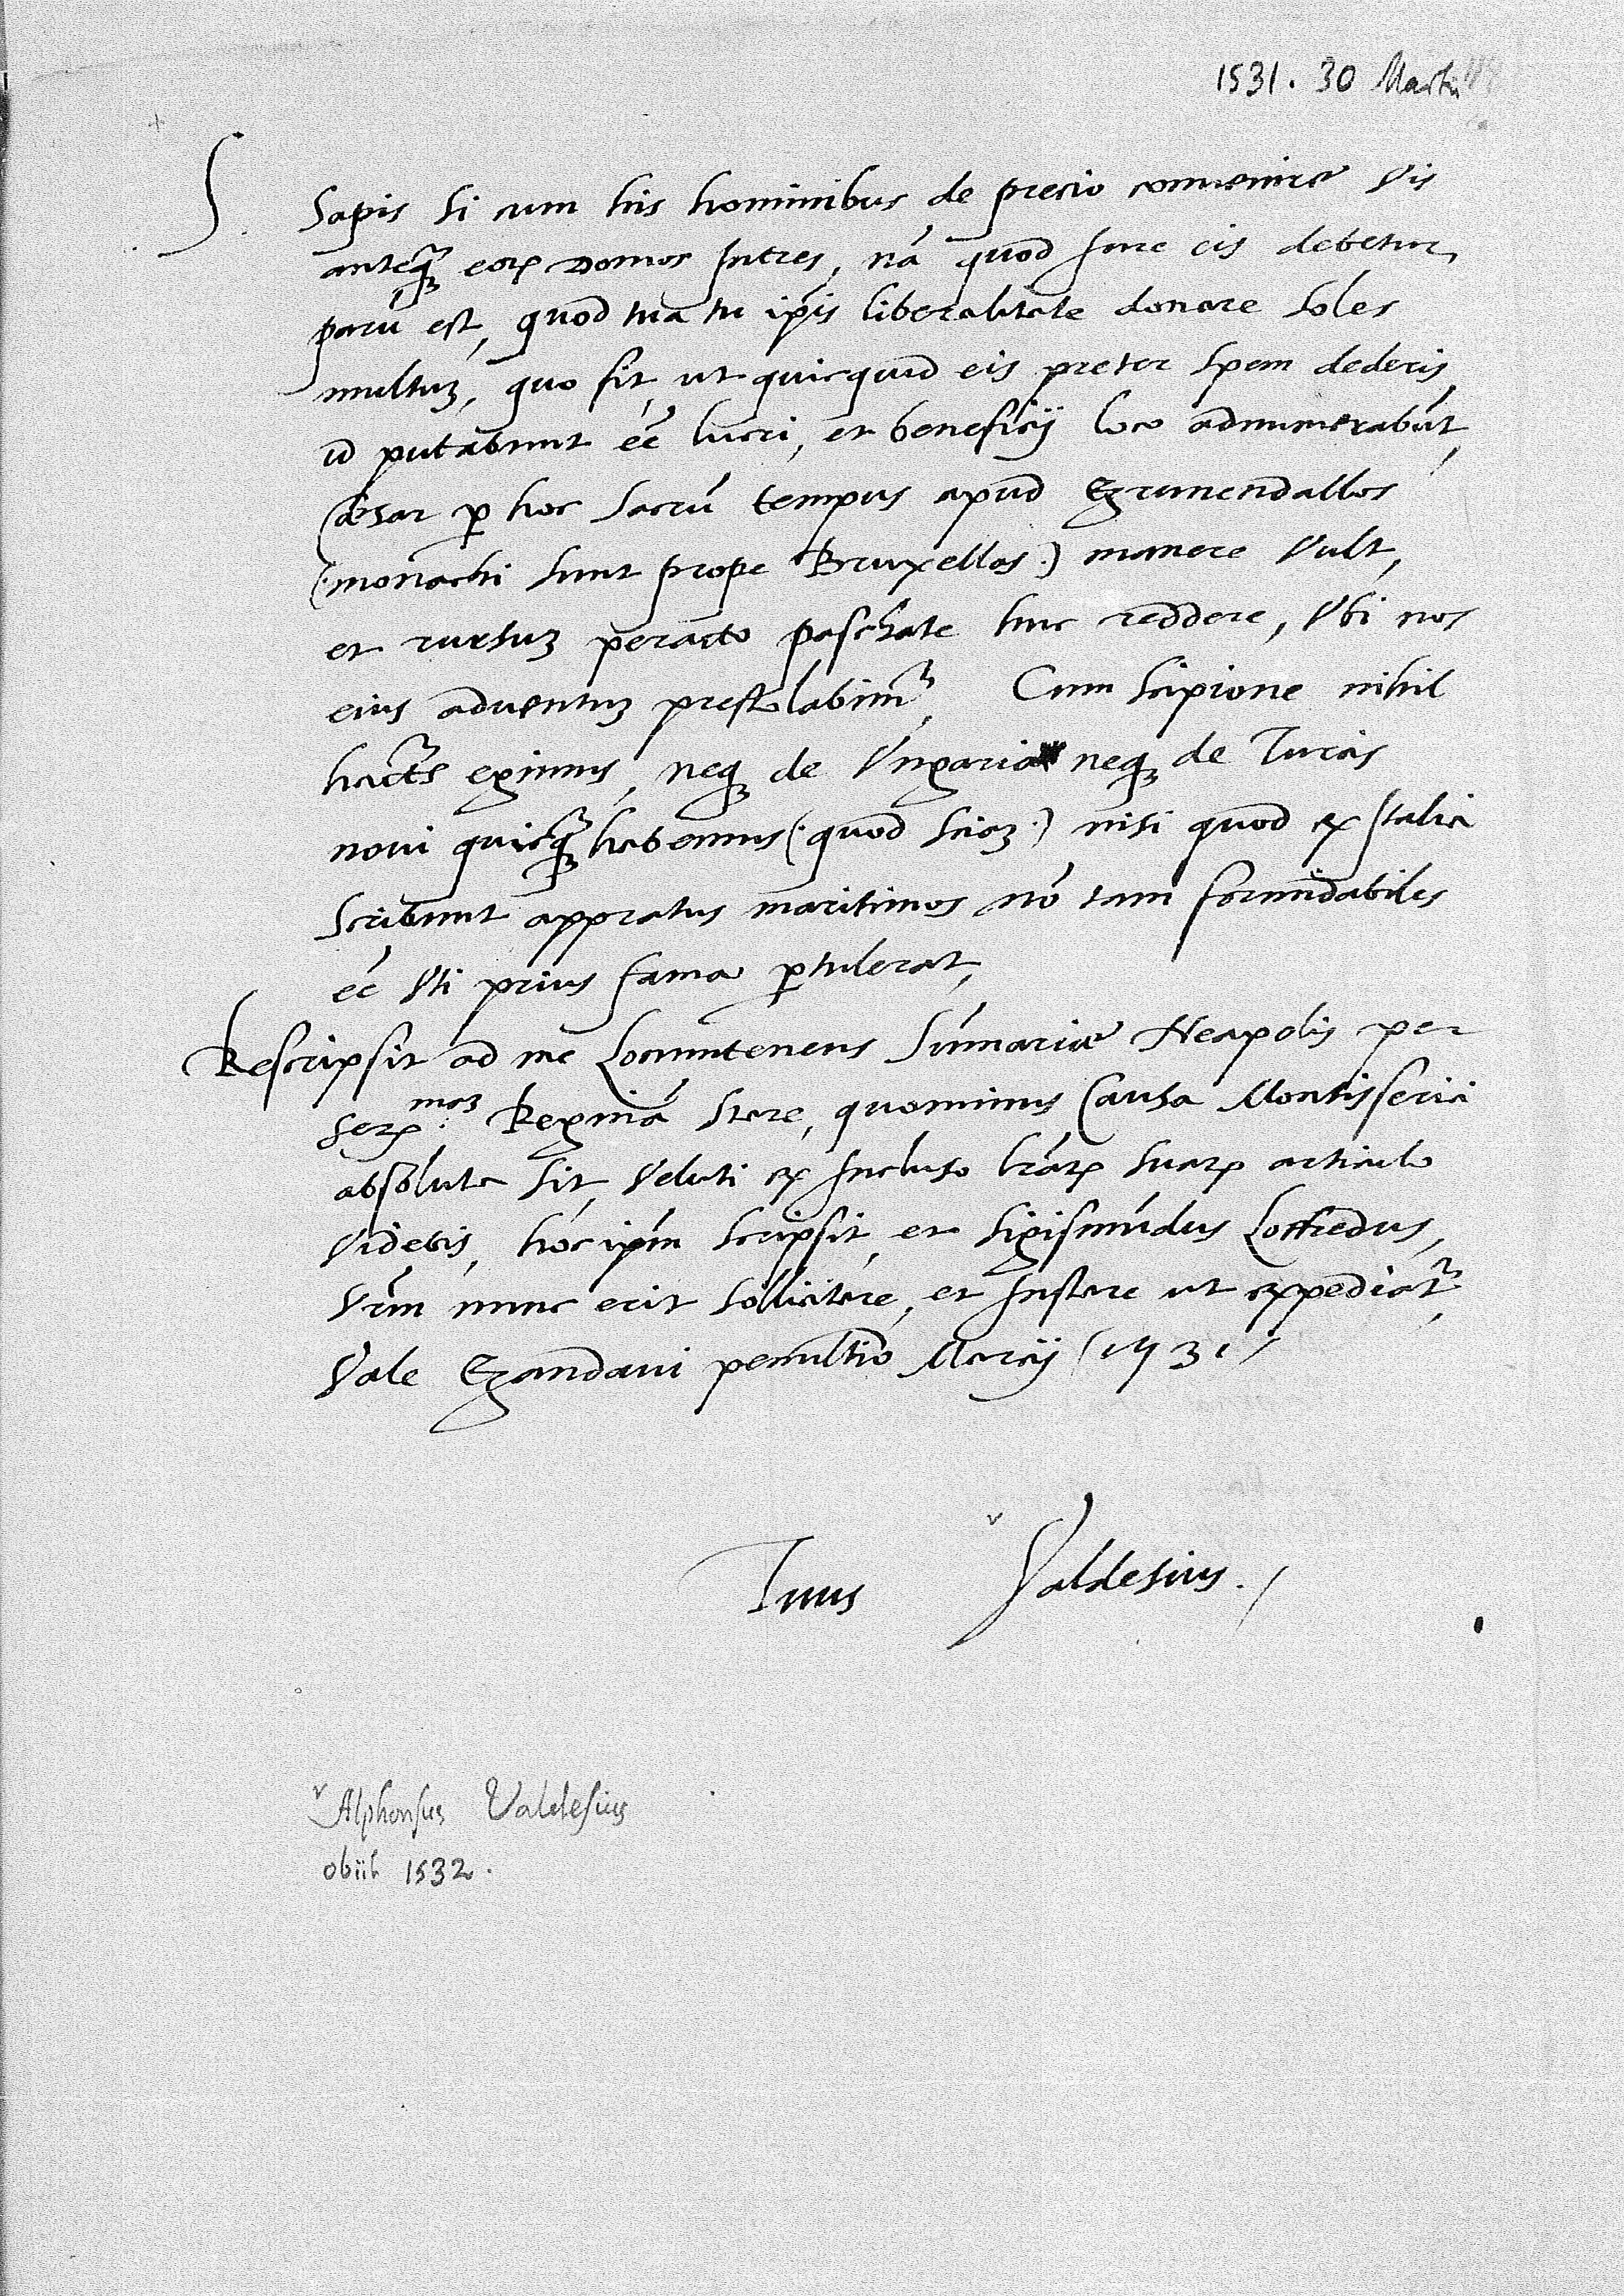 1531. 30 Martii
S. Sapis si cum his hominibus de precio convenire vis
anteq̃ꝫ eoꝝ domos Intres, nã quod Iure eis debetur,
parũ est, quod tua tu ip̃is liberalitate donare soles
multuꝫ, quo fit, ut quicquid eis preter spem dederis,
id putabunt eẽ lucri, et beneficij loco adnumerabũt,
Cæsar ꝑ hoc sacrũ tempus apud Grunendallos
(monachi sunt prope Bruxellas) manere vult,
et rursuꝫ peracto paschate huc reddere, Vbi nos
eius adventuꝫ prestolabimᷣ, Cum Scipione nihil
hactẽs egimus, neqꝫ de Vngaria neqꝫ de Turcis
novi quicq̃ꝫ habemus (quod sciaꝫ) nisi quod ex Italia
scribunt appratus maritimos nõ tam formidabiles
eẽ Vti prius fama ꝑtulerat,
Rescripsit ad me Locumtenens Sũmariæ Neapolis per
Serꝫ.maꝫ Reginã stare, quominus Causa Montisserici
absoluta sit, Veluti ex Incluso lr̃aꝝ suaꝝ articulo
Videbis, hoc ip̃m scripsit, et Sigismũdus Loffredus,
Vr̃m nunc erit sollicitare, et Instare ut expediatᷣ,
Vale Gandavi penultĩo Marcij 1531
Tuus Valdesius.
Alphonsus Valdesius
obiit 1532.